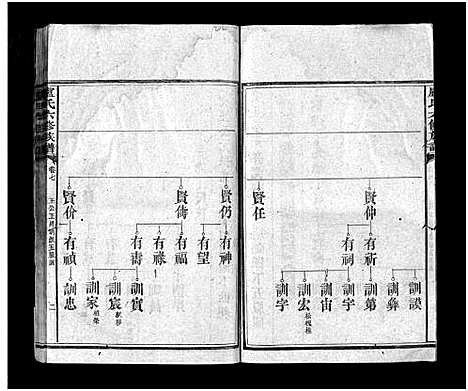 賢伸
賢任
有祈
有祠
訓謨
訓彝
訓第
訓宇
訓宙
訓宏
訓宇
賢仍
賢儔
賢价
有神
有望
有福
有祿
有壽
有禎
訓賓
訓宸
訓家
訓忠
盧氏六修族譜
卷七